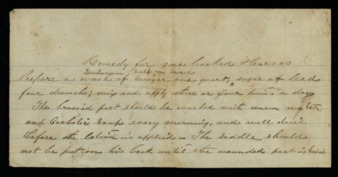 Remedy for sore backed Horses
Prepare a wash of Vinegar one quart, sugar of lead
four drachms; mix and apply three or four times a day
The bruised part should be washed with warm water
and Carbolic Soap every morning, and well dried
before the lotion is applied – The saddle should
not be put on his back until the wounded part is